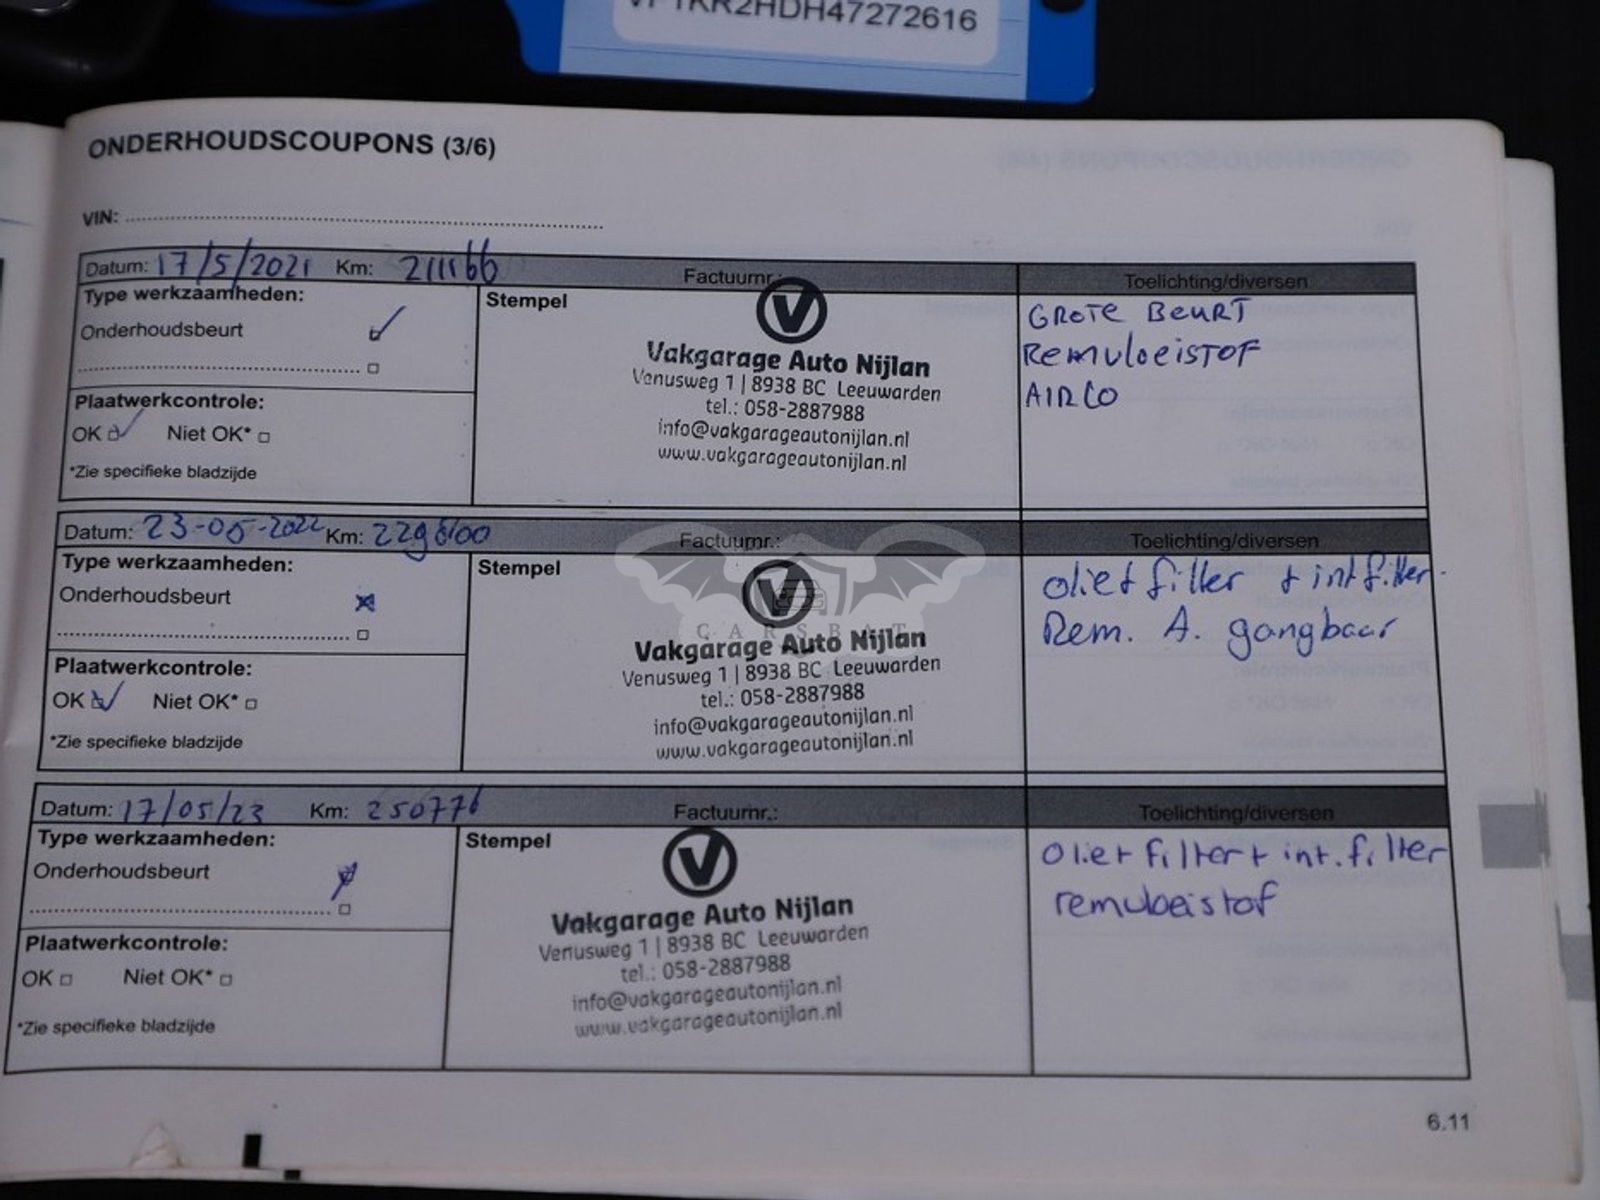 VF1KR2HDH47272616
ONDERHOUDSCOUPONS (3/6)
VIN:
Datum: 17/5/2021 Km: 211166 Factuurnr.: Toelichting/diversen
Type werkzaamheden:
Onderhoudsbeurt
Plaatwerkcontrole:
OK Niet OK*
*Zie specifieke bladzijde
Stempel
V
Vakgarage Auto Nijlan
Venusweg 1 | 8938 BC Leeuwarden
tel.: 058-2887988
info@vakgarageautonijlan.nl
www.vakgarageautonijlan.nl
GROTE BEURT
Remvloeistof
AIRCO
Datum: 23-05-2022 Km: Factuurnr.: Toelichting/diversen
Type werkzaamheden:
Onderhoudsbeurt
Plaatwerkcontrole:
OK Niet OK*
*Zie specifieke bladzijde
Stempel
V
CARSBAT
Vakgarage Auto Nijlan
Venusweg 1 | 8938 BC Leeuwarden
tel.: 058-2887988
info@vakgarageautonijlan.nl
www.vakgarageautonijlan.nl
olie+filter + int filter.
Rem. A. gangbaar
Datum: 17/05/23 Km: 250776 Factuurnr.: Toelichting/diversen
Type werkzaamheden:
Onderhoudsbeurt
Plaatwerkcontrole:
OK Niet OK*
*Zie specifieke bladzijde
Stempel
V
Vakgarage Auto Nijlan
Venusweg 1 | 8938 BC Leeuwarden
tel.: 058-2887988
info@vakgarageautonijlan.nl
www.vakgarageautonijlan.nl
olie+filter+ int.filter
remvloeistof
6.11